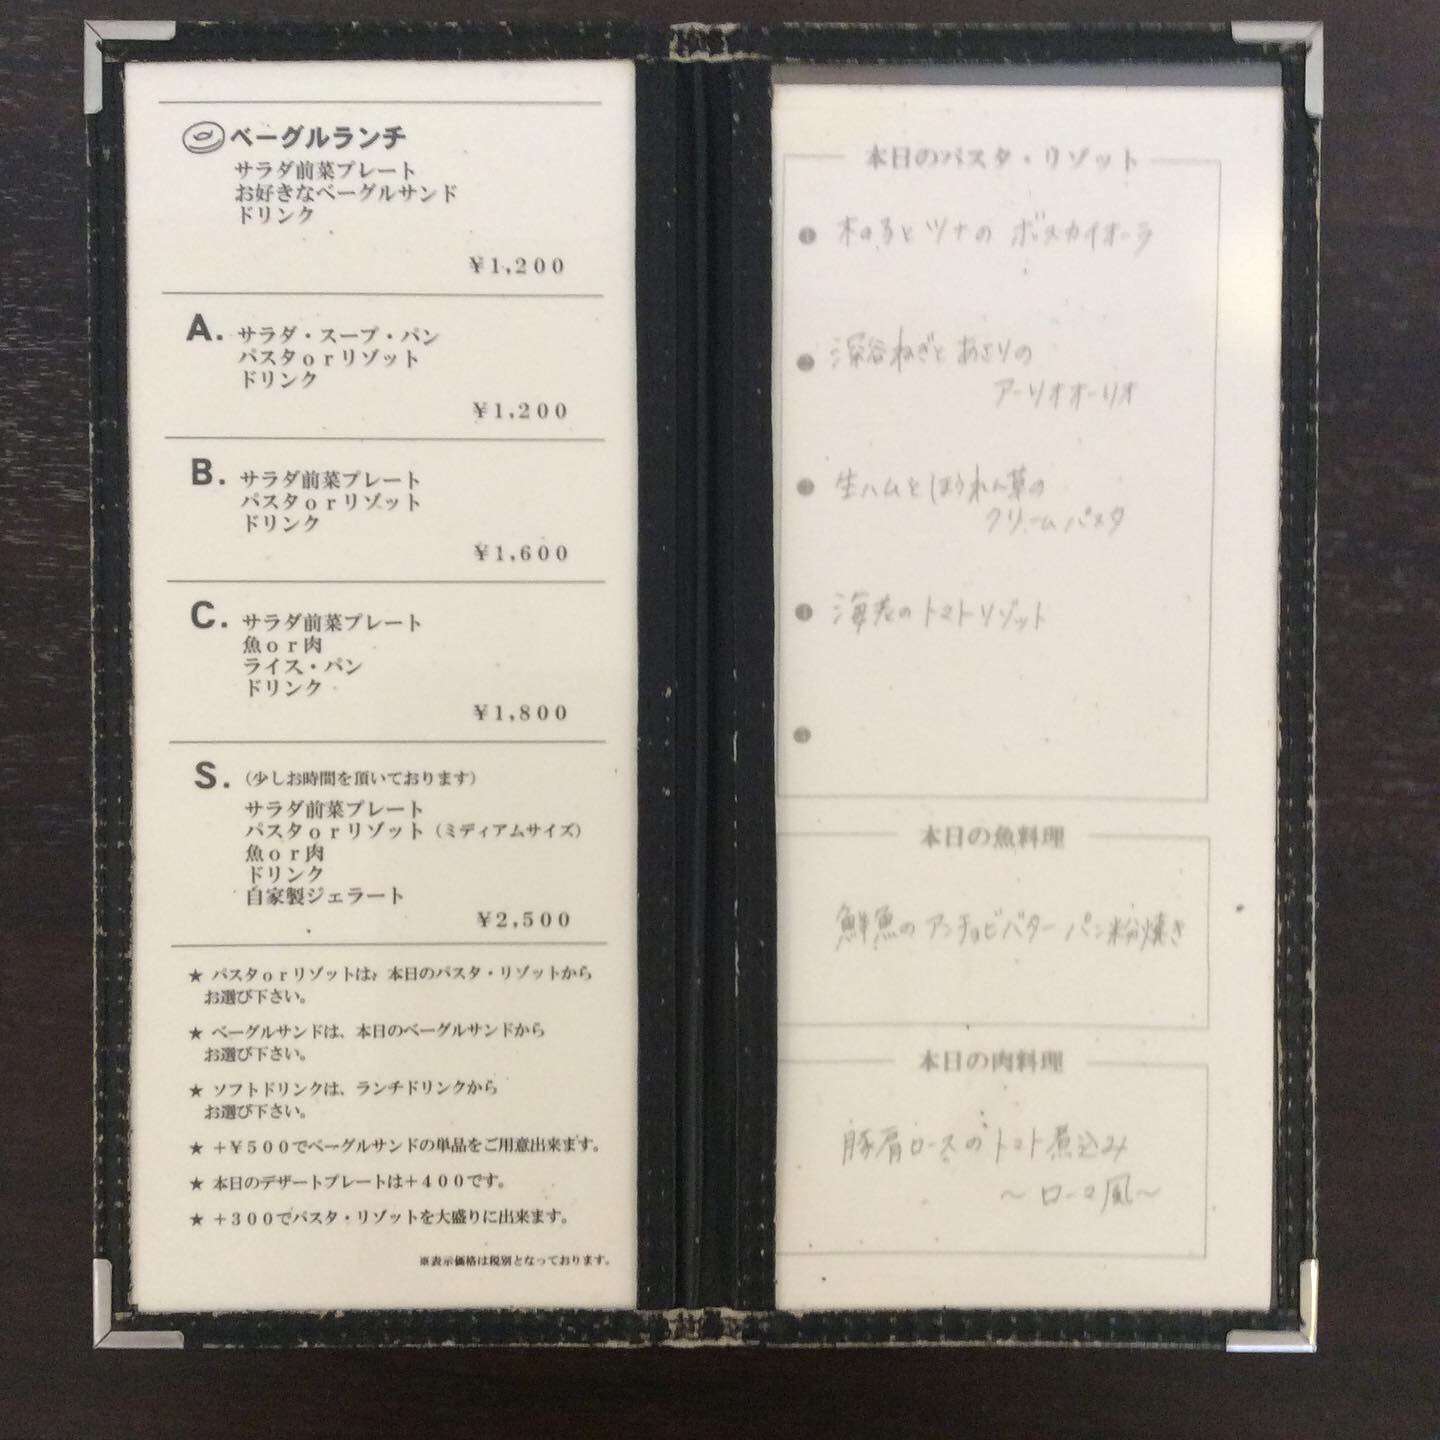 ベーグルランチ
サラダ前菜プレート
お好きなベーグルサンド
ドリンク
￥1,200
A. サラダ・スープ・パン
パスタorリゾット
ドリンク
￥1,200
B. サラダ前菜プレート
パスタorリゾット
ドリンク
￥1,600
C. サラダ前菜プレート
魚or肉
ライス・パン
ドリンク
￥1,800
S. （少しお時間を頂いております）
サラダ前菜プレート
パスタorリゾット（ミディアムサイズ）
魚or肉
ドリンク
自家製ジェラート
￥2,500
★ パスタorリゾットは、本日のパスタ・リゾットから
お選び下さい。
★ ベーグルサンドは、本日のベーグルサンドから
お選び下さい。
★ ソフトドリンクは、ランチドリンクから
お選び下さい。
★ ＋￥500でベーグルサンドの単品をご用意出来ます。
★ 本日のデザートプレートは＋400です。
★ ＋300でパスタ・リゾットを大盛りに出来ます。
※表示価格は税別となっております。
本日のパスタ・リゾット
❶ 木の子とツナの ボスカイオーラ
❷ 深谷ねぎと あさりの
アーリオオーリオ
❸ 生ハムと ほうれん草の
クリームパスタ
❹ 海老のトマトリゾット
❺
本日の魚料理
鮮魚の アンチョビバター パン粉焼き
本日の肉料理
豚肩ロースの トマト煮込み
～ ローマ風～